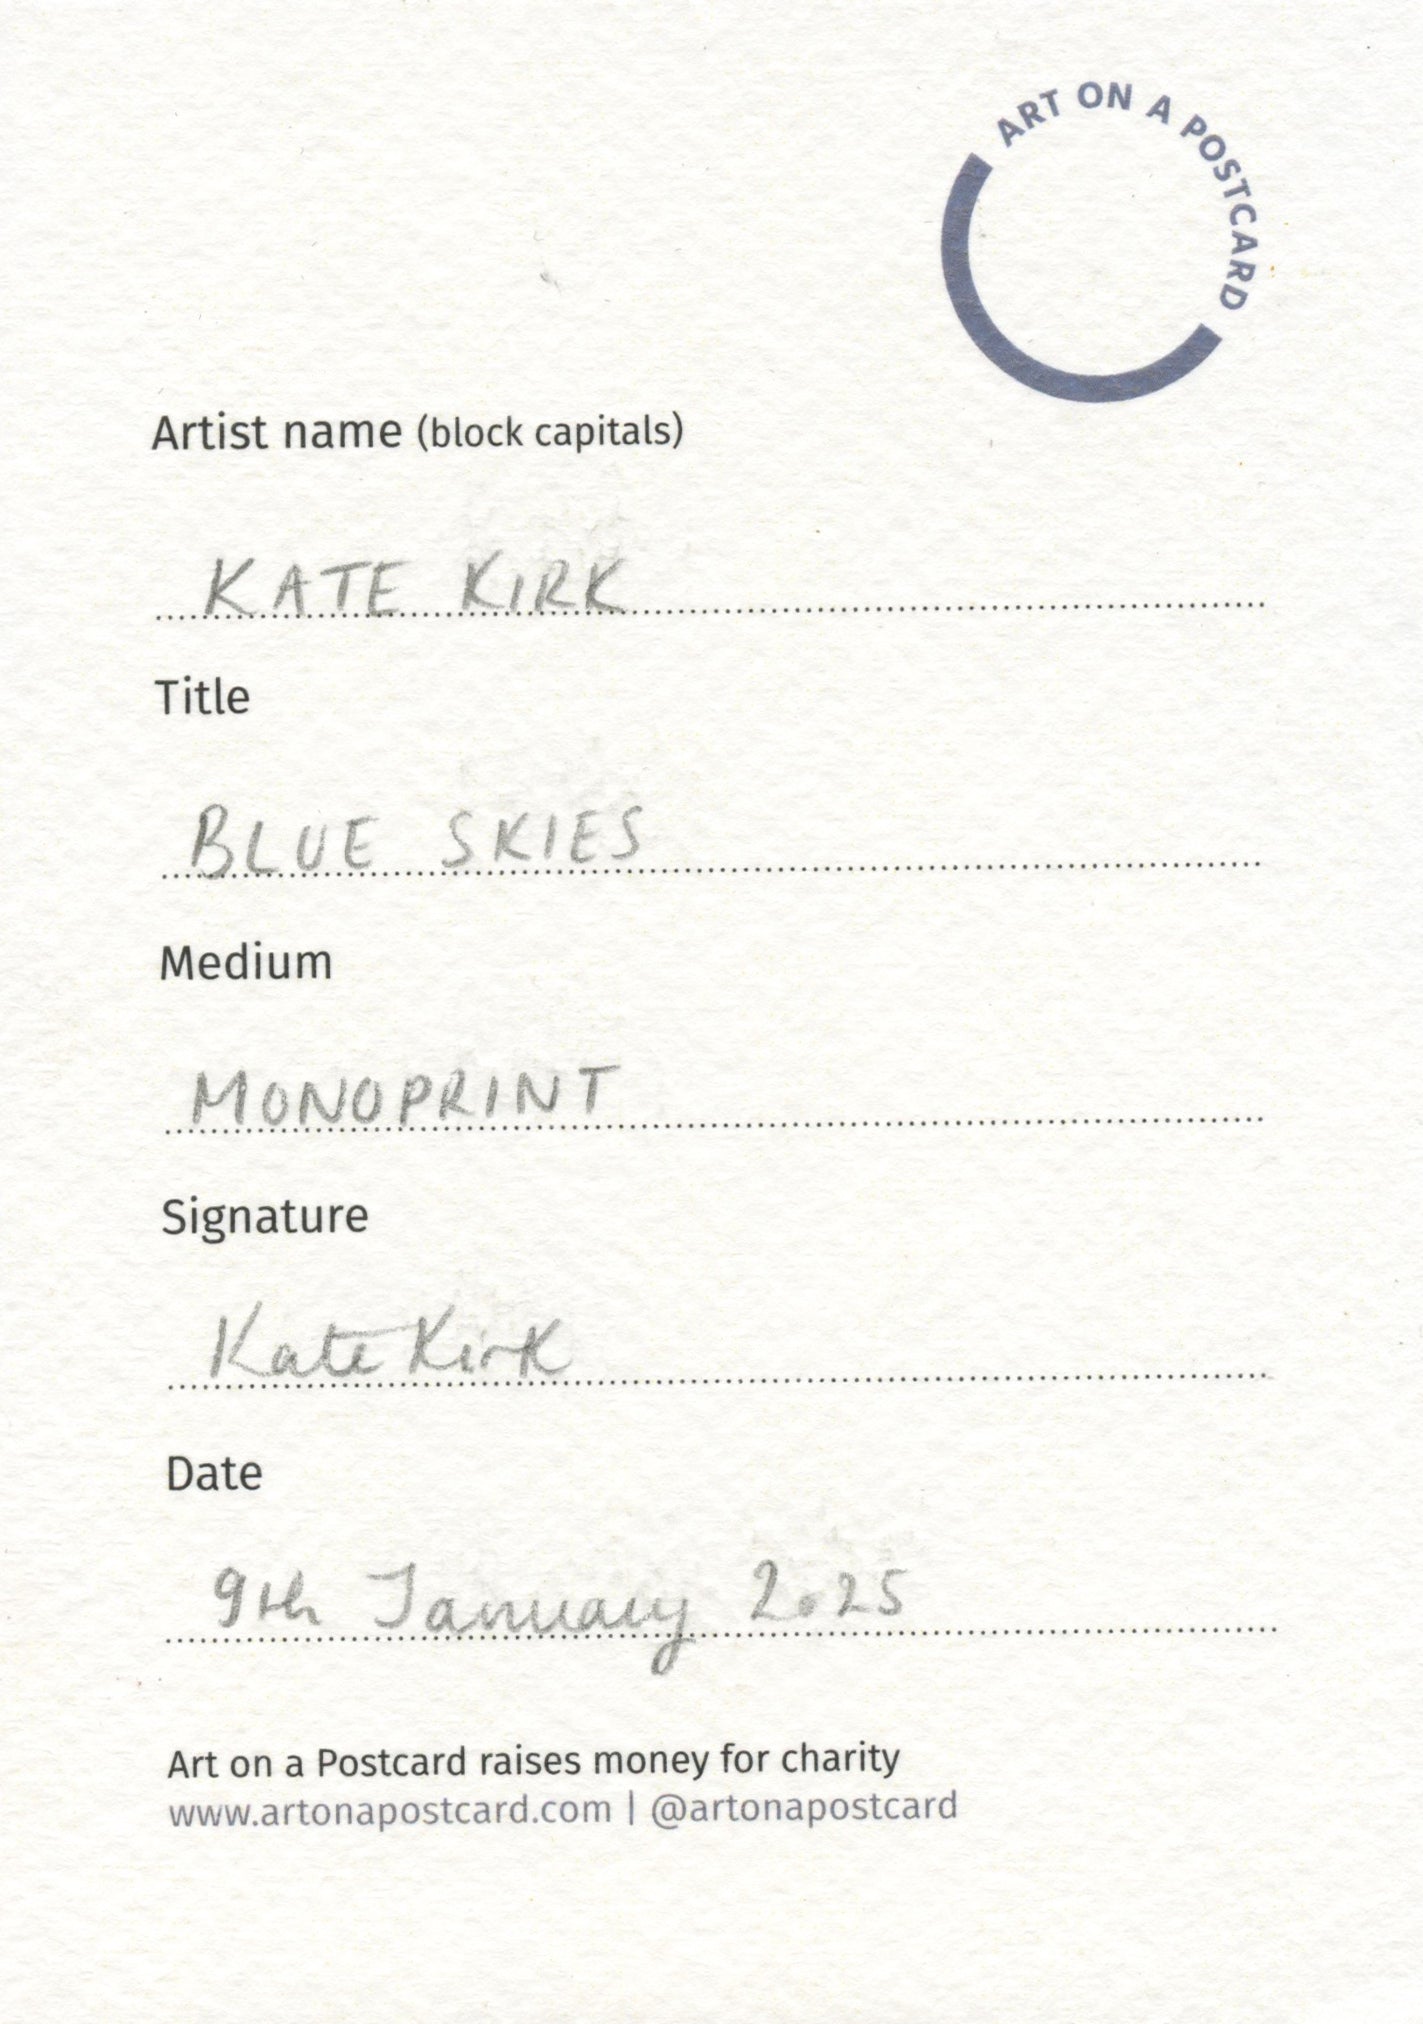 ART ON A POSTCARD
Artist name (block capitals)
KATE KIRK
Title
BLUE SKIES
Medium
MONOPRINT
Signature
Kate Kirk
Date
9th January 2025
Art on a Postcard raises money for charity
www.artonapostcard.com | @artonapostcard